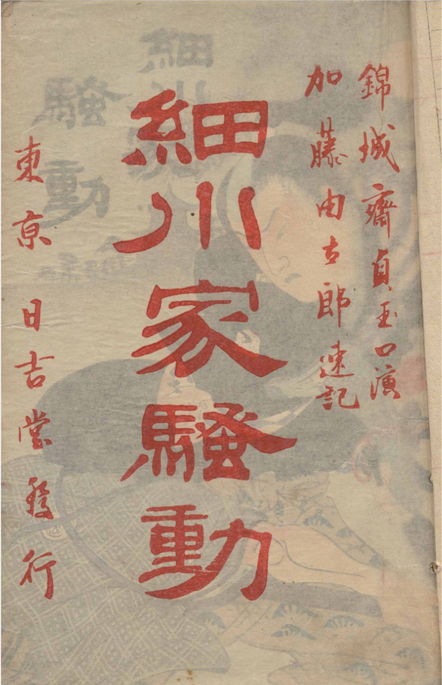 錦城齋貞玉口演
加藤由太郎速記
細川家騒動
東京日吉堂発行